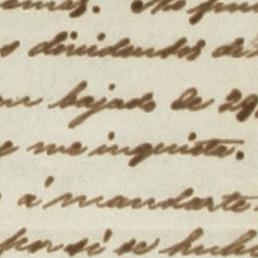 emas. No pue
s dividendos de
n bajado de 29
e me inquieta.
á mandarte
por si se hubi